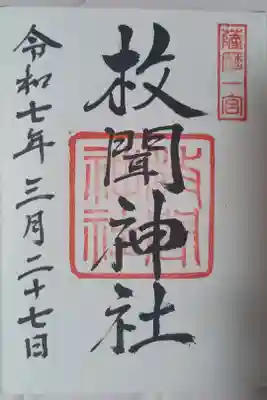 薩摩一宮
枚聞神社
枚聞神社
令和七年三月二十七日